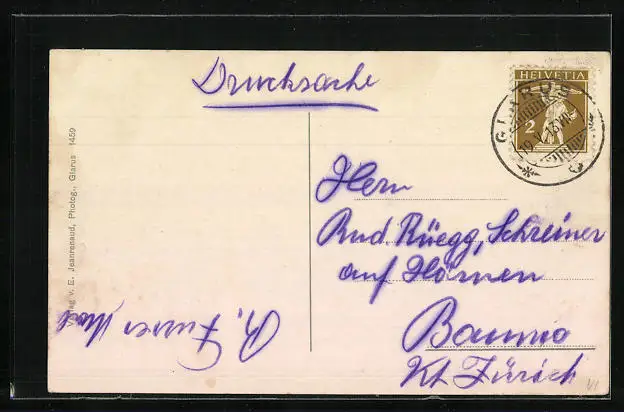 Drucksache
HELVETIA
2
GLARUS
19.V.13.VII
Verlag v. E. Jeanrenaud, Photog., Glarus 1459
Herrn
Rud. Rüegg, Schreiner
auf Hörnen
Bauma
Kt. Zürich
R. Furrer